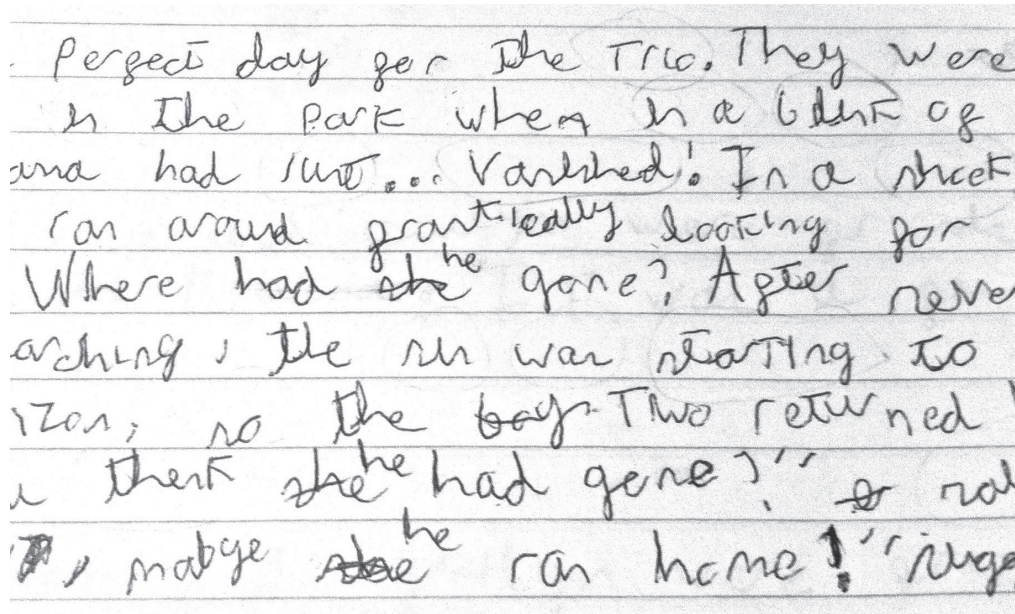 Perfect day for the Trio. They were
in the Park when in a blink of
ana had just... Vanished! In a shock
ran around frantically looking for
Where had she he gone? After seve
arching, the sun was starting to
izon, so the boy Two returned
u think she he had gone?" said
, mabye she he ran home!" sugge